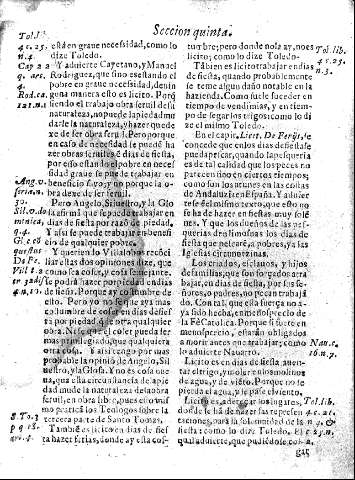 Seccion quinta.
Tol.l.
4 c. 25.
Cap 2 2
q. aes.
Rod. ca.
121.n.1
Ang.v.
30.
Sil.v.do
q.4.
Gl. c ob
Vill t.2
n,10.
S. To.3
ar. 4.
está en graue necessidad, como lo
dize Toledo.
Y aduierte Cayetano, y Manuel
Rodriguez, que sino es estando el
pobre en graue necessidad, de nin
guna manera esto es licito. Porq̃
siendo el trabajo obra seruil de su
naturaleza, no puede la piedad mu
darle la naturaleza, y hazer que de
xe de ser obra seruil. Pero porque
en caso de necessidad se puedẽ ha
zer obras seruiles ẽ dias de fiesta,
por esso estando el pobre en nece
sidad graue se puede trabajar en
beneficio suyo; y no porque la o-
bra dexe de ser seruil.
Pero Angelo, Siluestro, y la Glo
sa afirmã que se puede trabajar en
dias de fiesta por razõ de piedad.
Y assi se puede trabajar en benefi
cio de qualquier pobre.
Y quieren lo Villalobos recõci
liar estas dos opiniones dize, que
como sea cosa, y cosa semejante,
se podrá hazer por piedad en dias
de fiesta. Porque ay costumbre de
ello. Pero yo no se que aya mas
costumbre de coser en dias de fies
ta por piedad, que de otra qualquier
obra. Ni se que el coser pueda ser
mas priuilegiado, que qualquiera
otra cosa. Y assi tengo por mas
probable la opinió de Angelo, Sil
uestro, y la Glosa. Y no es cosa nue
ua, que esta circunstancia de la pie
dad mude la naturaleza de la obra
seruil, en obra libre, pues esto mis
mo practicã los Teologos sobre la
tercera parte de Santo Tomas.
Tambiẽ es licito en dias de fies
ta hazer ferias, donde ay esta cos-
tumbre; pero donde no la ay, no es
licito; como lo dize Toledo.
Tãbien es licito trabajar en dias
de fiesta, quando probablemente
se teme algun daño notable en la
hazienda. Como suele suceder en
tiempo de vendimias, y en tiem-
po de segar los trigos: como lo di
ze el mismo Toledo.
En el capit. Licet. De Ferijs, se
concede que en los dias de fiesta se
pueda pescar, quando la pesqueria
es de tal calidad que los peces no
parecen sino en ciertos tiempos;
como son los atunes en las costas
de Andaluzia en España. Y aduier
tese del mismo texto, que esto no
se ha de hazer en fiestas muy solẽ
nes. Y que los dueños de las pes-
querias den limosnas los dias de
fiesta que pescarẽ, a pobres, ya las
Iglesias circunuezinas.
Los criados, esclauos, y hijos
de familias, que son forçados a tra
bajar, en dias de fiesta, por sus se-
ñores, o padres, no pecan trabajã
do. Con tal que esta fuerça no a-
ya sido hecha, en menosprecio de
la Fè Catolica. Porque si fuere en
menosprecio, estarán obligados
a morir antes que trabajar; como
lo aduierte Nauarro.
Licito es en dias de fiesta auen-
tar el trigo, y moler en los molinos
de agua, y de viẽto. Porque no se
pierda el agua, y se passe el viento.
Licito es, adereçar los lugares,
donde se hã de hazer las represen
taciones, para la solenidad de la
fiesta: como lo dize Toledo. El
qual aduierte, que pudiẽdose co-
Tol. lib.
4 c 25.
n.3.
Nau. c.
16.n.7.
Tol. lib.
4 c. 25.